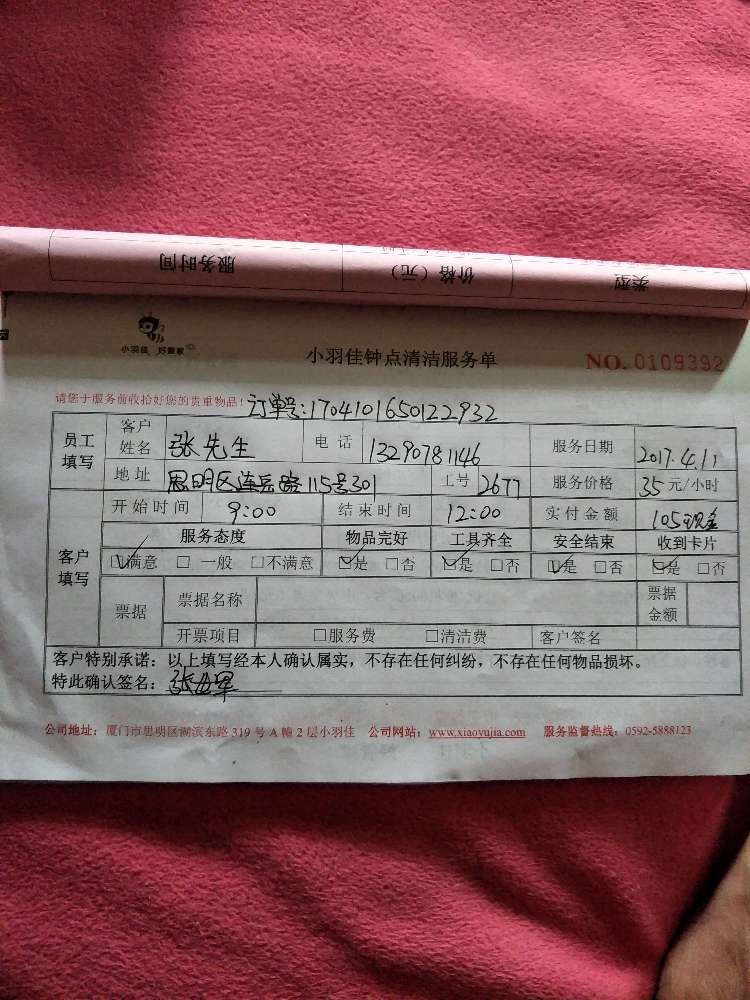 服务时间 价格（元） 类型
小羽佳 好管家
小羽佳钟点清洁服务单 NO. 0109392
请您于服务前收拾好您的贵重物品！ 订单号:1704101650122932
员工填写 客户姓名 张先生 电话 13290781146 服务日期 2017.4.11
地址 思明区莲岳路115号301 工号 2677 服务价格 35 元/小时
客户填写 开始时间 9:00 结束时间 12:00 实付金额 105现金
服务态度 物品完好 工具齐全 安全结束 收到卡片
☑满意 □一般 □不满意 ☑是 □否 ☑是 □否 ☑是 □否 ☑是 □否
票据 票据名称 票据金额
开票项目 □服务费 □清洁费 客户签名
客户特别承诺：以上填写经本人确认属实，不存在任何纠纷，不存在任何物品损坏。
特此确认签名：张
公司地址：厦门市思明区湖滨东路 319 号 A 幢 2 层小羽佳 公司网站：www.xiaoyujia.com 服务监督热线：0592-5888123